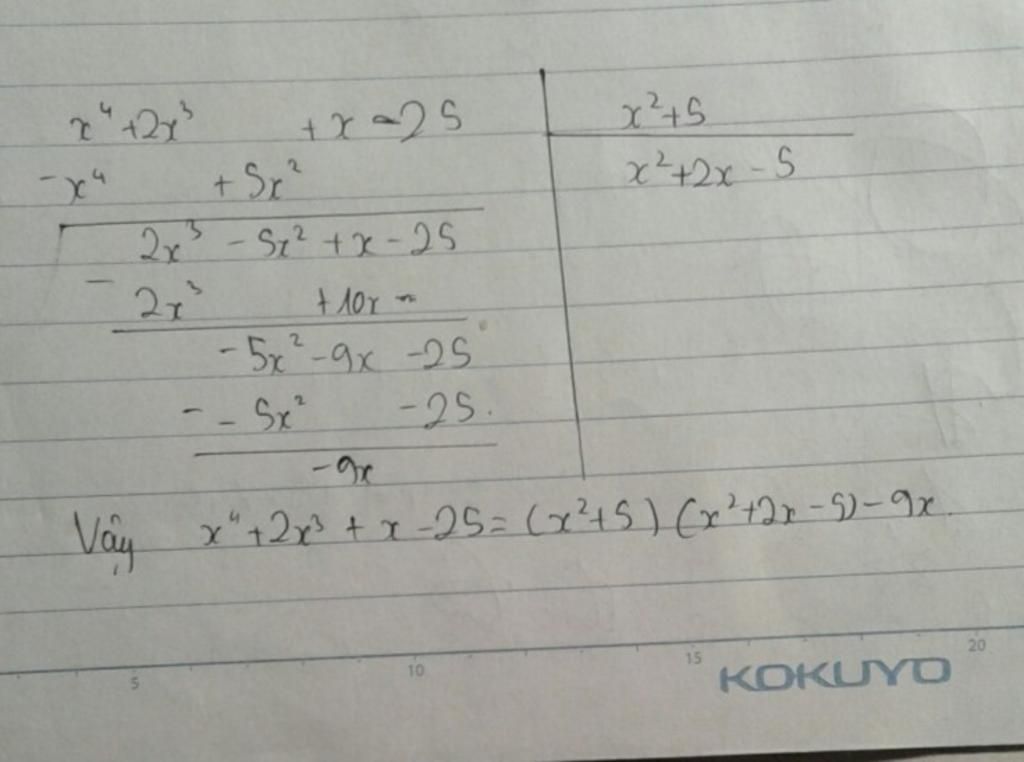 x⁴+2x³ +x-25 x²+5
-x⁴ +5x² x²+2x-5
2x³ -5x²+x-25
- 2x³ +10x-
-5x²-9x -25
- -5x² -25.
-9x
Vậy x⁴+2x³+x-25=(x²+5)(x²+2x-5)-9x.
5 10 15 20
KOKUYO